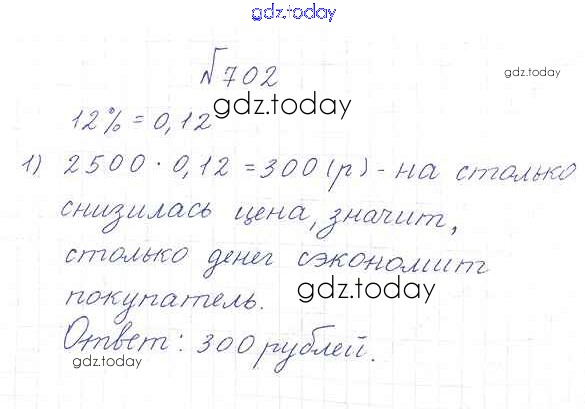 gdz.today
№702
gdz.today
12% = 0,12
gdz.today
1) 2500 · 0,12 = 300 (р) - на столько
снизилась цена, значит,
столько денег сэкономит
покупатель.
gdz.today
Ответ: 300 рублей.
gdz.today